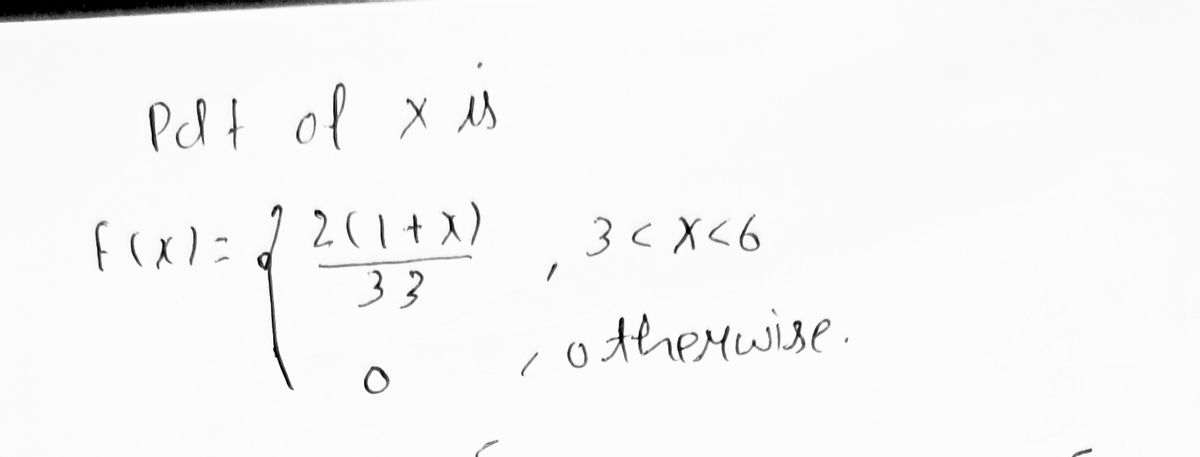 Pdf of x is
f(x) = { 2(1+x) / 33 , 3 < x < 6
0 , otherwise.